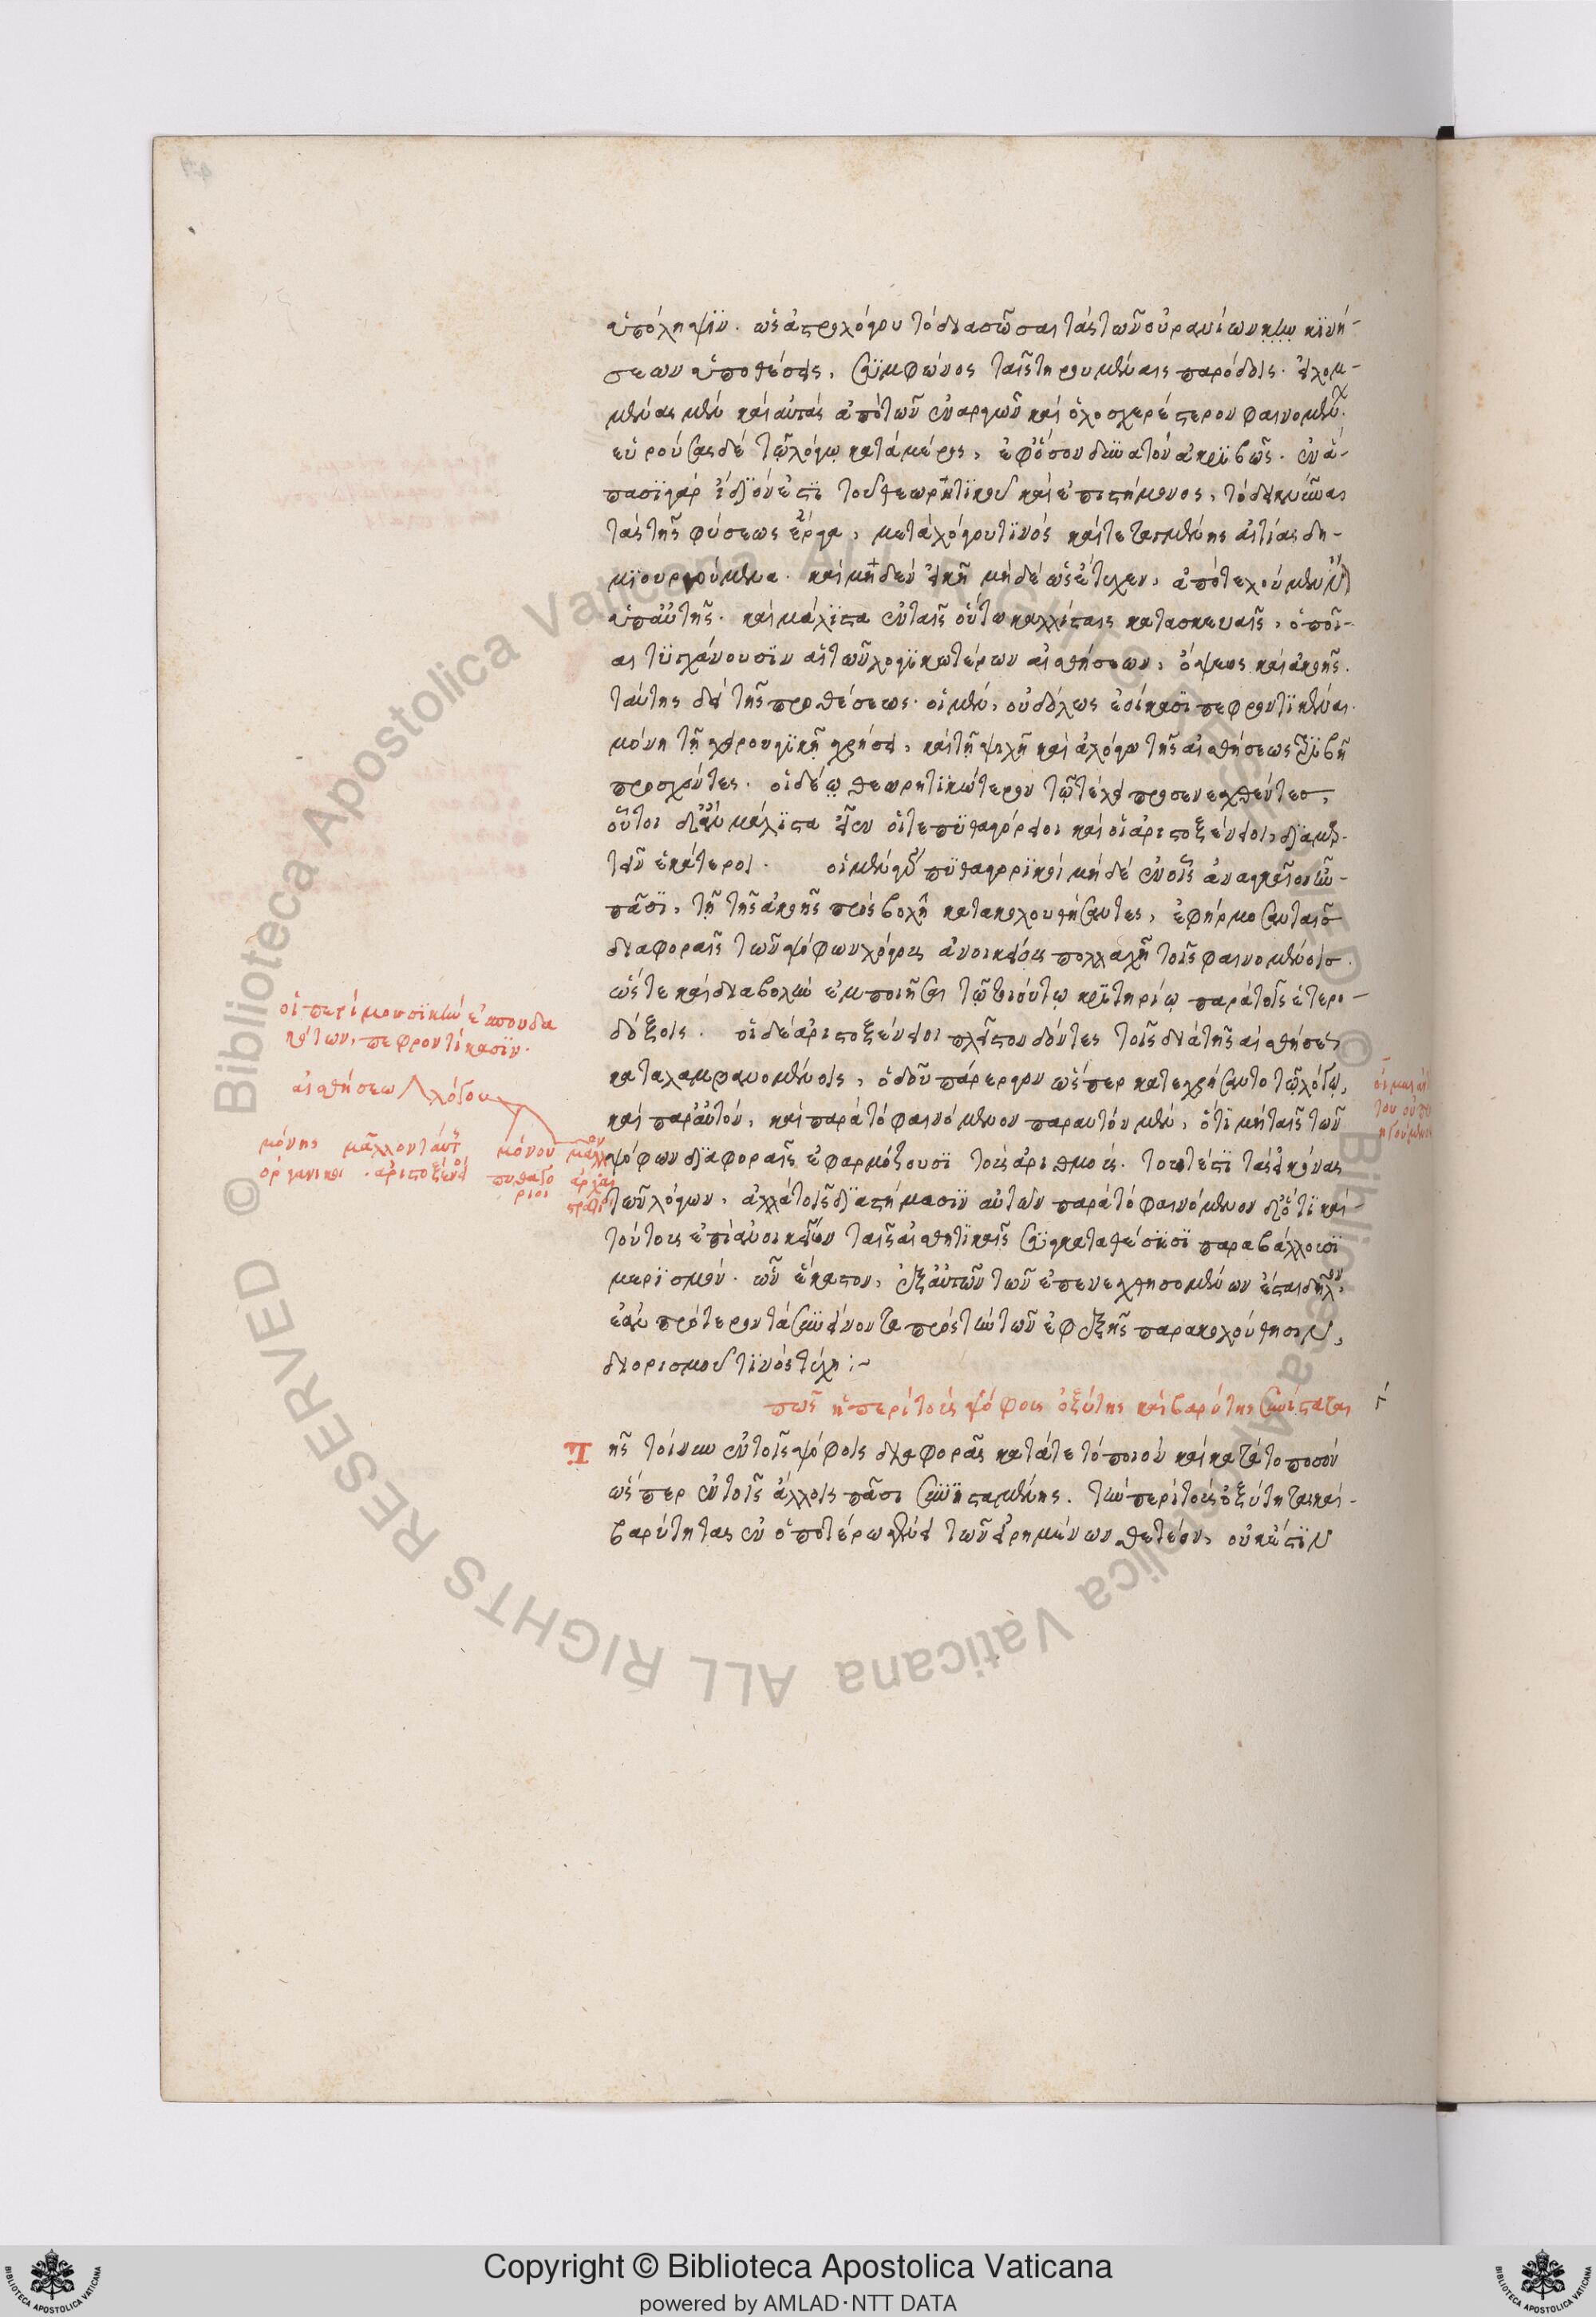 ὑπόληψϊν. ὡς ἀστρολόγου τὸ διασῶσαι τὰς τῶν οὐρανίων κϊνή-
σεων ὑποθέσεις, συμφώνος ταῖς τηρουμέναις παρόδοις. εἰλημ-
μένας μὲν καὶ αὐτὰς ἀπὸ τῶν ἐναργῶν καὶ ὁλοσχερέστερον φαινομένων.
εὑρούσας δὲ τῷ λόγῳ κατὰ μέρος, ἐφ' ὅσον δυνατὸν ἀκρϊβῶς. ἐν ἅ-
πασϊ γὰρ ἴδϊόν ἐστϊ τοῦ θεωρητϊκοῦ καὶ ἐπιστήμονος, τὸ δεικνύναι
τὰ τῆς φύσεως ἔργα, μετὰ λόγου τϊνὸς καὶ τεταγμένης αἰτίας δη-
μϊουργούμενα. καὶ μηδὲν εἰκῆ μηδὲ ὡς ἔτυχεν, ἀποτελούμενον
ὑπ' αὐτῆς. καὶ μάλϊστα ἐν ταῖς οὕτω καλλίσταις κατασκευαῖς, ὁποῖ-
αι τυγχάνουσϊν αἱ τῶν λογϊκωτέρων αἰσθήσεων, ὄψεως καὶ ἀκοῆς.
ταύτης δὲ τῆς προθέσεως. οἱ μὲν, οὐδόλως ἐοίκασϊ πεφροντϊκέναι.
μόνη τῆ χειρουργϊκῆ χρήσει, καὶ τῆ ψιλῆ καὶ ἀλόγω τῆς αἰσθήσεως τρϊβῆ
προσχόντες. οἱ δὲ θεωρητϊκώτερον τῷ τέλει προσενεχθέντες,
οὗτοι δ' ἂν μάλϊστα εἶεν οἵ τε πϋθαγόρειοι καὶ οἱ ἀριστοξένειοι, δϊαμαρ-
τεῖν ἑκάτεροι. οἱ μὲν γὰρ πϋθαγορϊκοὶ μηδὲ ἐν οἷς ἀναγκαῖον ἦν
πᾶσϊ, τῆ τῆς ἀκοῆς προσβολῆ κατακολουθήσαντες, ἐφήρμοσαν ταῖς
διαφοραῖς τῶν ψόφων λόγους ἀνοικείους πολλαχῆ τοῖς φαινομένοις.
ὥστε καὶ διαβολὴν ἐμποιῆσαι τῷ τοιούτῳ κρϊτηρίῳ παρὰ τοῖς ἑτερο-
δόξοις. οἱ δὲ ἀριστοξένειοι πλεῖστον δόντες τοῖς διὰ τῆς αἰσθήσεως
καταλαμβανομένοις, ὁδοῦ πάρεργον ὥσπερ κατεχρήσαντο τῷ λόγῳ,
καὶ παρ' αὐτὸν, καὶ παρὰ τὸ φαινόμενον παρ' αὐτὸν μὲν, ὅτϊ μὴ ταῖς τῶν
ψόφων δϊαφοραῖς ἐφαρμόζουσϊ τοὺς ἀριθμοὺς. τουτέστϊ τὰς εἰκόνας
τῶν λόγων, ἀλλὰ τοῖς δϊαστήμασϊν αὐτῶν παρὰ τὸ φαινόμενον δὲ ὅτϊ καὶ
τούτους ἐπὶ ἀνοικείων ταῖς αἰσθητϊκαῖς συγκαταθέσεσϊ παραβάλλουσϊ
μερϊσμῶν. ὧν ἕκαστον, ἐξ αὐτῶν τῶν ἐπενεχθησομένων ἔσται δῆλον,
ἐὰν πρότερον τὰ συντείνοντα πρὸς τὴν τῶν ἐφεξῆς παρακολούθησιν,
διορισμοῦ τϊνὸς τύχη :~
πῶς ἡ περὶ τοὺς ψόφους ὀξύτης καὶ βαρύτης συνίσταται γ΄
Τ ῆς τοίνυν ἐν τοῖς ψόφοις διαφορᾶς κατά τε τὸ ποιὸν καὶ κατὰ τὸ ποσὸν
ὥσπερ ἐν τοῖς ἄλλοις πᾶσι συνϊσταμένης. τὴν περὶ τοὺς ὀξύτητας καὶ
βαρύτητας ἐν ὁποτέρω γένει τῶν εἰρημένων θετέον, οὐκ ἔστϊν
οἱ περὶ μουσϊκὴν ἐσπουδα
κότων, πεφροντίκασϊν.
αἰσθήσεω λόγου
μόνης μᾶλλον ταύτης μόνου μᾶλλον
ὀργανικοι . ἀριστοξένειοι πυθαγο
ριοι